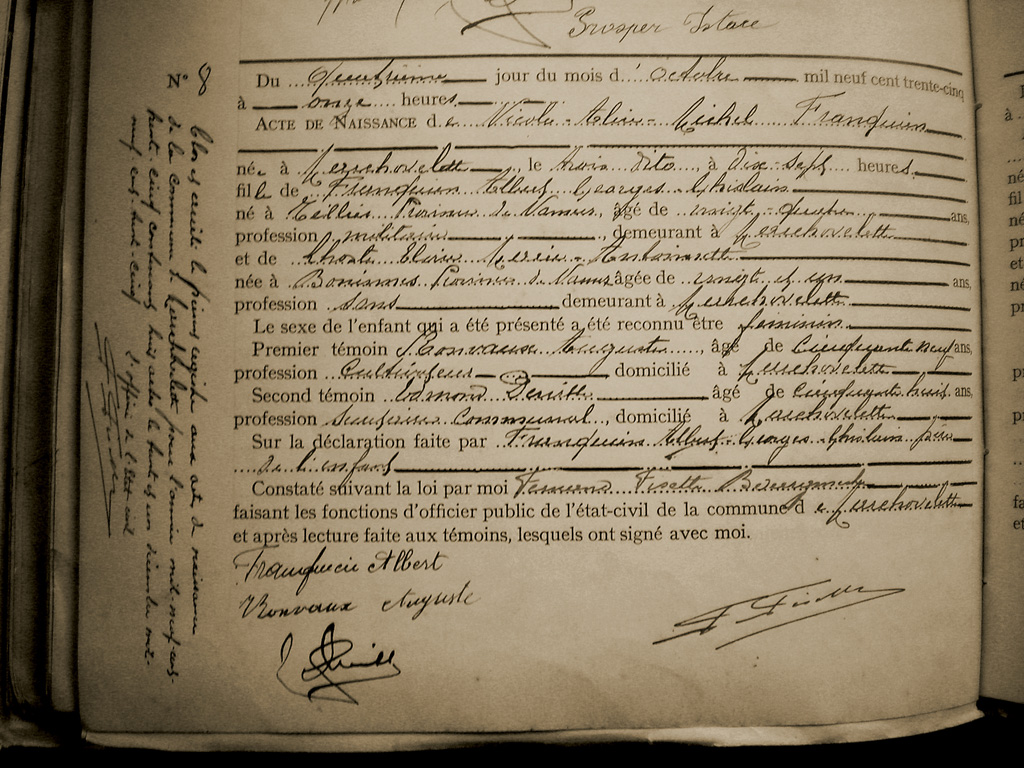 Prosper Istace
Du quatrième jour du mois d' octobre mil neuf cent trente-cinq
à onze heures
ACTE DE NAISSANCE de Nicole - Aline - Michel Franquin
née à Marchovelette, le trois dito, à dix-sept heures
fille de Franquin Albert Georges Ghislain
né à Tillier Province de Namur, âgé de vingt-quatre ans,
profession militaire, demeurant à Marchovelette
et de Marie - Antoinette
née à Boninnes Province de Namur âgée de vingt et un ans,
profession sans demeurant à Marchovelette
Le sexe de l'enfant qui a été présenté a été reconnu être féminin
Premier témoin Ronvaux Auguste, âgé de Cinquante neuf ans,
profession Cultivateur domicilié à Marchovelette
Second témoin Edmond Deville âgé de cinquante huit ans,
profession Secrétaire Communal, domicilié à Marchovelette
Sur la déclaration faite par Franquin Albert Georges Ghislain père
de l'enfant
Constaté suivant la loi par moi Fernand
faisant les fonctions d'officier public de l'état-civil de la commune de Marchovelette
et après lecture faite aux témoins, lesquels ont signé avec moi.
Franquin Albert
Ronvaux Auguste
Clos et arrêté le présent registre aux actes de naissance
de la commune de Marchovelette pour l'année mil neuf cent
trente cinq contenant huit actes le trente et un décembre mil
neuf cent trente-cinq
L'officier de l'état civil